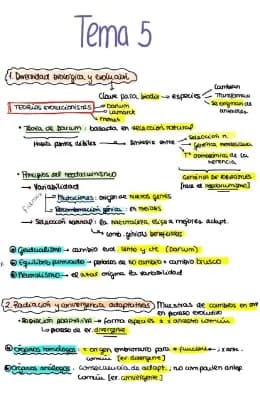 Tema 5
1. Diversidad biológica y evolución
Cambian
Clave para biodiv → especies
Transforman
Se originan de anteriores
TEORÍAS EVOLUCIONISTAS
Darwin
Lamarck
• Teoría de Darwin: basada en selección natural
Había partes débiles
Síntesis entre
Selección n.
Tª cromosómica de la herencia
(nace el neodarwinismo)
• Principios del neodarwinismo
- Variabilidad
Mutaciones: origen de nuevos genes
Recombinación génica: en meiosis
- Selección natural: la naturaleza elige mejores adapt.
comb. génicas beneficiosas
Gradualismo → cambio evol. lento y cte (Darwin)
Equilibrio puntuado → periodos de no cambio + cambio brusco
Neutralismo → el azar origina la variabilidad
2. Radiación y convergencia adaptativas
Muestras de cambios en
en proceso evolutivo
• RADIACIÓN ADAPTATIVA → forma especies a ancestro común
proceso de ev. divergente
Órganos homólogos → = origen embrionario para ≠ funciones
común [ev. divergente]
Órganos análogos → consecuencia de adapt., no comparten antep
común [ev. convergente]